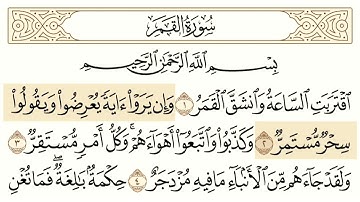 سُورَةُ القَمَرِ
بِسْمِ اللَّهِ الرَّحْمَٰنِ الرَّحِيمِ
اقْتَرَبَتِ السَّاعَةُ وَانشَقَّ الْقَمَرُ ١ وَإِن يَرَوْا ءَايَةً يُعْرِضُوا وَيَقُولُوا
سِحْرٌ مُّسْتَمِرٌّ ٢ وَكَذَّبُوا وَاتَّبَعُوا أَهْوَاءَهُمْ ۚ وَكُلُّ أَمْرٍ مُّسْتَقِرٌّ ٣
وَلَقَدْ جَاءَهُم مِّنَ الْأَنبَاءِ مَا فِيهِ مُزْدَجَرٌ ٤ حِكْمَةٌ بَالِغَةٌ ۖ فَمَا تُغْنِ